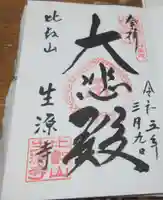 奉拝
令和五年
三月九日
大悲殿
比叡山
生源寺